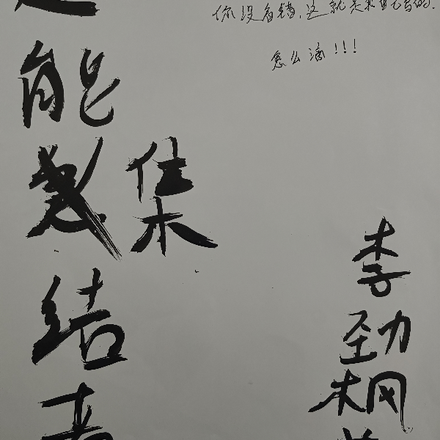 你没看错,这就是我自己写的.
怎么滴!!!
能
集
结
李劲枫